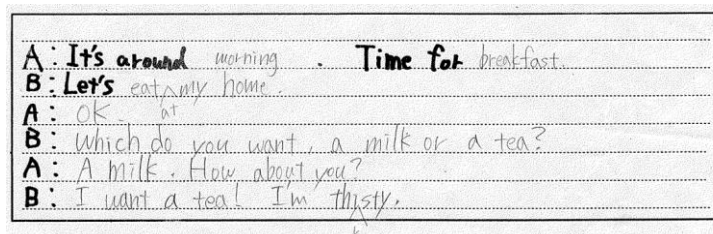 A: It's around morning. Time for breakfast.
B: Let's eat at my home.
A: OK.
B: Which do you want, a milk or a tea?
A: A milk. How about you?
B: I want a tea! I'm thirsty.